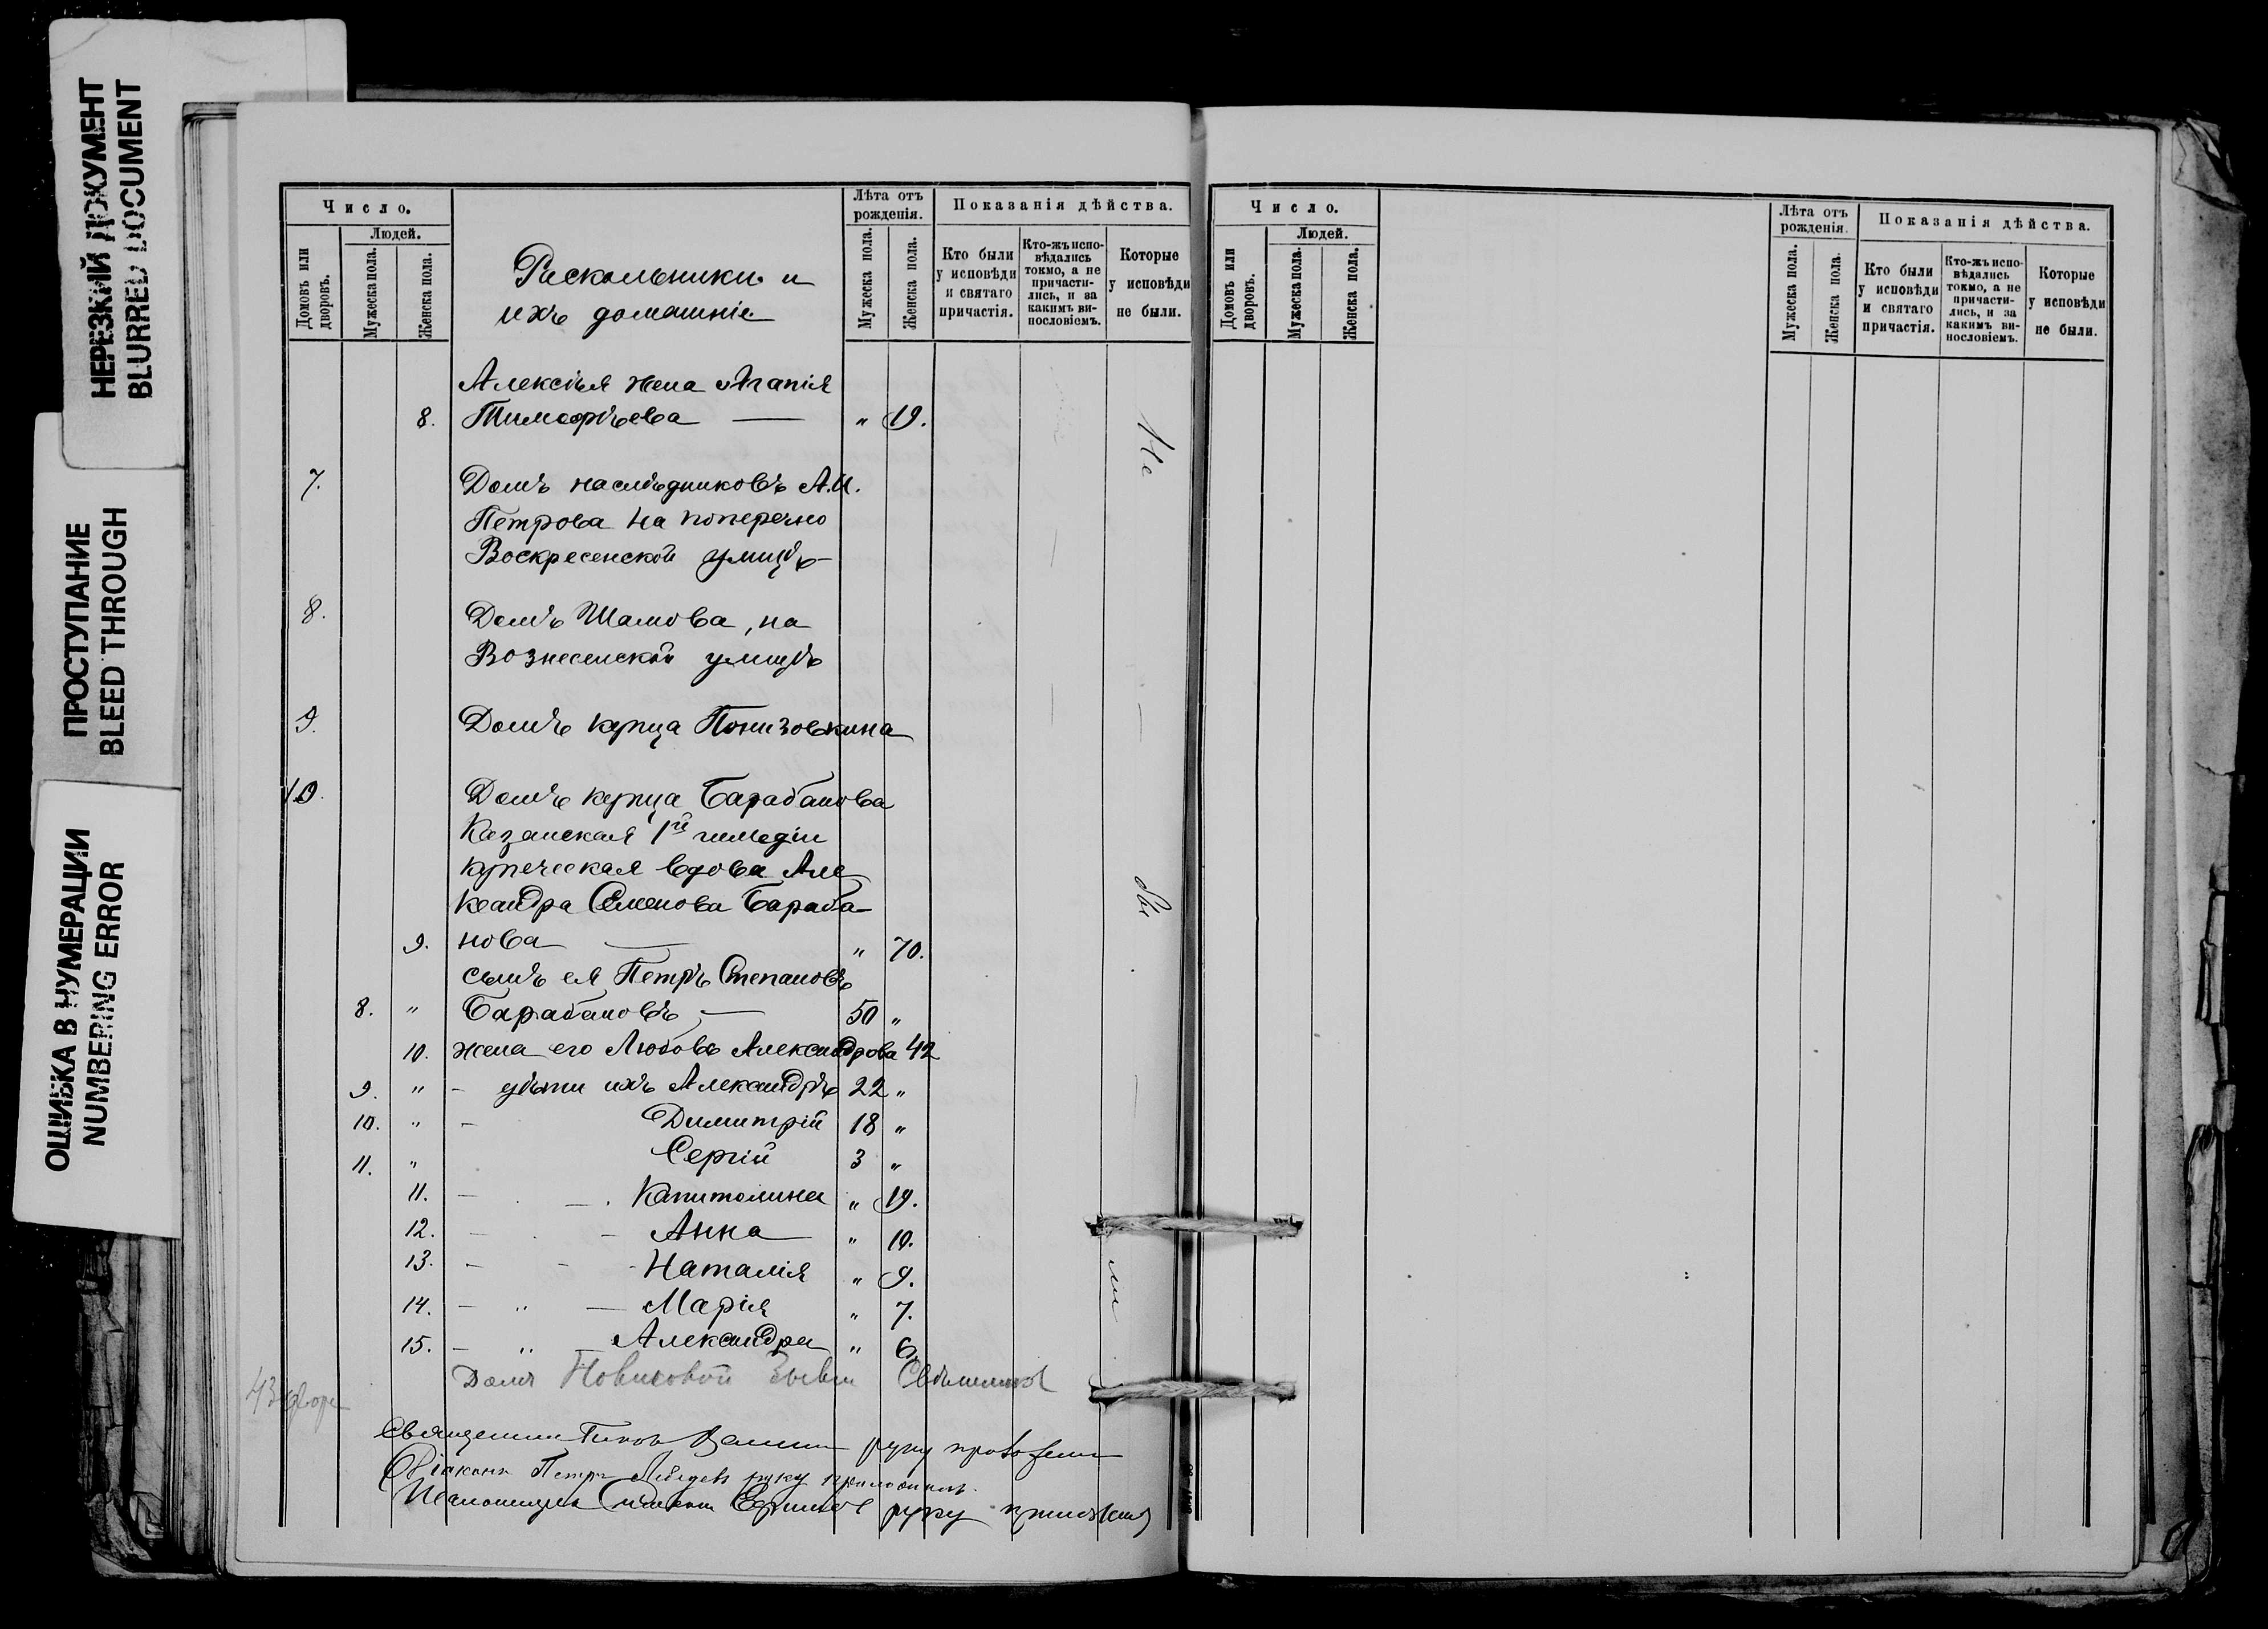 НЕРЕЗКИЙ ДОКУМЕНТ
BLURRED DOCUMENT
ПРОСТУПАНИЕ
BLEED THROUGH
ОШИБКА В НУМЕРАЦИИ
NUMBERING ERROR
Число.
Людей.
Домовъ или дворовъ.
Мужеска пола.
Женска пола.
Раскольники и
ихъ домашніе
Лѣта отъ рожденія.
Мужеска пола.
Женска пола.
Показанія дѣйства.
Кто были у исповѣди и святаго причастія.
Кто-жъ исповѣдались токмо, а не причастились, и за какимъ винословіемъ.
Которые у исповѣди не были.
Алексѣя жена Агапія
8. Тимофѣева — " 19.
Не
7. Домъ наслѣдниковъ А.И.
Петрова на поперечно
Воскресенской улицѣ
8. Домъ Шамова, на
Вознесенской улицѣ
9. Домъ купца Понизовкина
10. Домъ купца Барабанова
Казанская 1й гильдіи
купеческая вдова Але
ксандра Семенова Бараба
9. нова — " 70.
сынъ ея Петръ Степановъ
8. " Барабановъ — 50 "
10. жена его Любовь Александрова 42
9. " - дѣти ихъ Александръ 22 "
10. " - Димитрій 18 "
11. " Сергій 3 "
11. — — Капитолина " 19.
12. — — Анна " 10.
13. — — Наталія " 9.
14. — " — Марія " 7.
15. — " Александра " 6.
Домъ Новиковой
43 двора
руку приложилъ
Діаконъ Петръ Лебедевъ руку приложилъ.
Псаломщикъ руку приложилъ
Число.
Людей.
Домовъ или дворовъ.
Мужеска пола.
Женска пола.
Лѣта отъ рожденія.
Мужеска пола.
Женска пола.
Показанія дѣйства.
Кто были у исповѣди и святаго причастія.
Кто-жъ исповѣдались токмо, а не причастились, и за какимъ винословіемъ.
Которые у исповѣди не были.